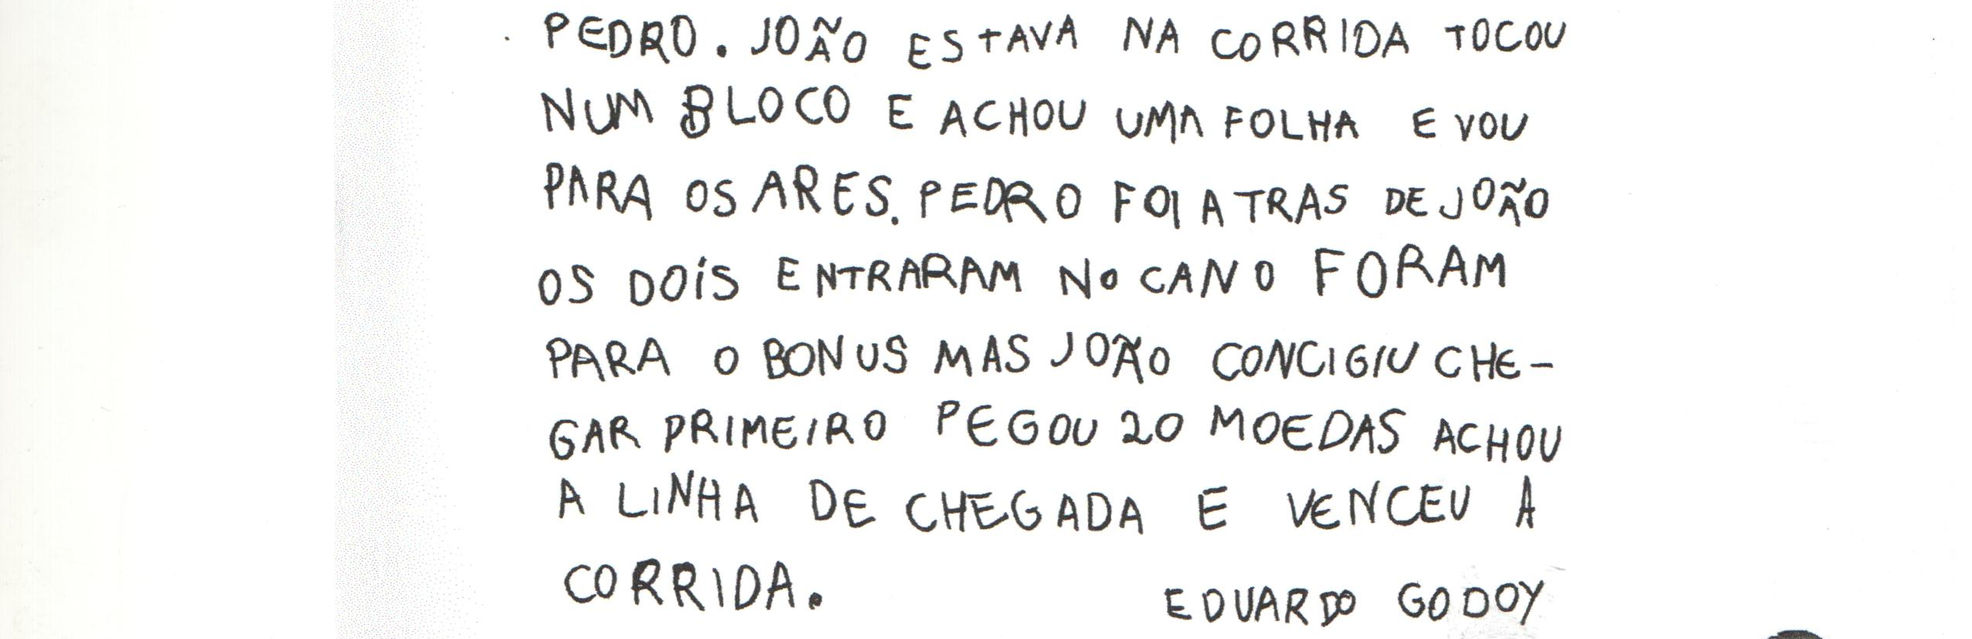 PEDRO. JOÃO ESTAVA NA CORRIDA TOCOU
NUM BLOCO E ACHOU UMA FOLHA E VOU
PARA OS ARES. PEDRO FOI ATRAS DE JOÃO
OS DOIS ENTRARAM NO CANO FORAM
PARA O BONUS MAS JOÃO CONCIGIU CHE-
GAR PRIMEIRO PEGOU 20 MOEDAS ACHOU
A LINHA DE CHEGADA E VENCEU A
CORRIDA. EDUARDO GODOY